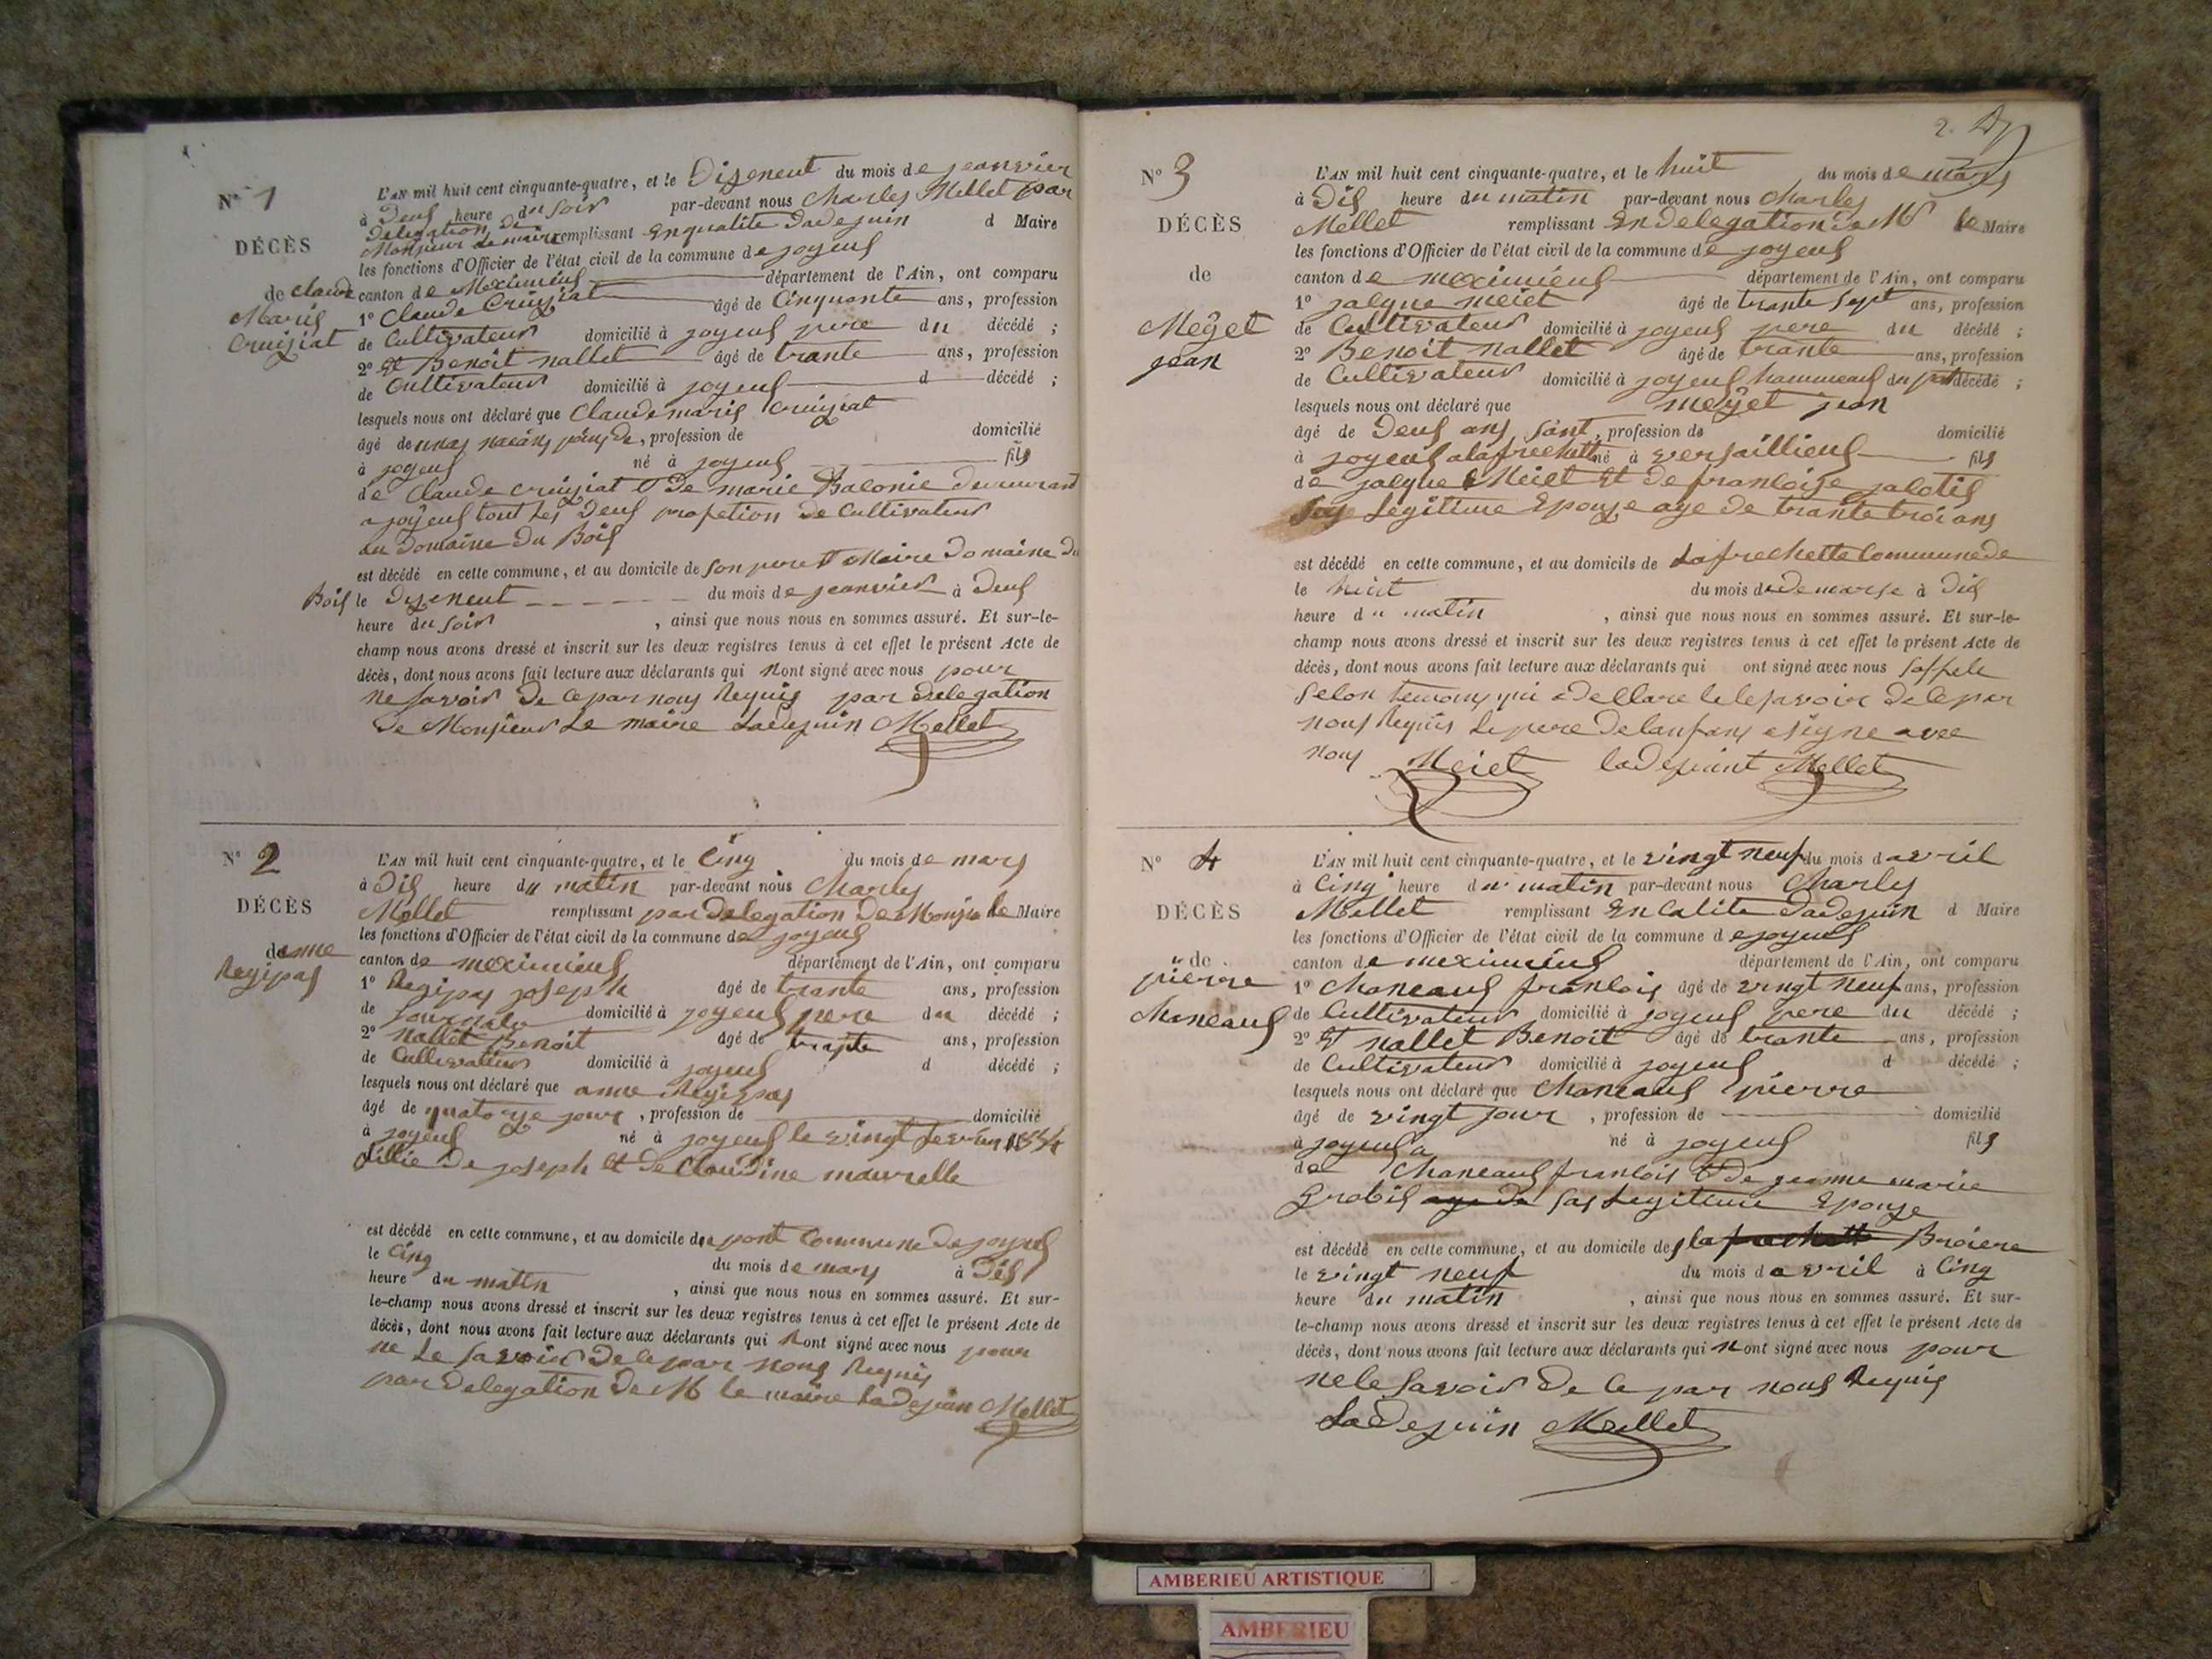 N° 1
DÉCÈS
de Claude
Maris
Cruiziat
L'AN mil huit cent cinquante-quatre, et le Dizeneuf du mois de jeanvier
à Deus heure du soir par-devant nous Charles Mellet par
Delegation de
Monsieur le maire remplissant En qualite Dadejuin d Maire
les fonctions d'Officier de l'état civil de la commune de joyeus
canton de Meximieus département de l'Ain, ont comparu
1° Claude Cruiziat âgé de Cinquante ans, profession
de Cultivateur domicilié à joyeus pere du décédé ;
2° Et Benoit nallet âgé de trante ans, profession
de Cultivateur domicilié à joyeus d décédé ;
lesquels nous ont déclaré que Claude maris Cruiziat
âgé de , profession de domicilié
à joyeus né à joyeus fils
de Claude Cruiziat et De marie Balonie demeurant
a joyeus tout les Deus profetion de Cultivateur
au Domaine du Bois
est décédé en cette commune, et au domicile de son pere et Maire Domaine du
Bois le Dizeneuf du mois de jeanvier à Deus
heure du soir , ainsi que nous nous en sommes assuré. Et sur-le-
champ nous avons dressé et inscrit sur les deux registres tenus à cet effet le présent Acte de
décès, dont nous avons fait lecture aux déclarants qui Nont signé avec nous pour
ne savoir De ce par nous Requis par delegation
De Monsieur Le maire Ladejuin Mellet
N° 2
DÉCÈS
de anne
Regipas
L'AN mil huit cent cinquante-quatre, et le Cinq du mois de mars
à Dis heure du matin par-devant nous Charles
Mellet remplissant par Delegation De Monsieu le Maire
les fonctions d'Officier de l'état civil de la commune de joyeus
canton de meximieus département de l'Ain, ont comparu
1° Regipas joseph âgé de trante ans, profession
de journalie domicilié à joyeus pere du décédé ;
2° nallet Benoit âgé de trante ans, profession
de Cultivateur domicilié à joyeus d décédé ;
lesquels nous ont déclaré que anne Regipas
âgé de quatorze jour , profession de domicilié
à joyeus né à joyeus le vingt fevrier 1854
fillie De joseph et de Claudine maurelle
est décédé en cette commune, et au domicile de pont Commune de joyeus
le Cinq du mois de mars à Dis
heure du matin , ainsi que nous nous en sommes assuré. Et sur-
le-champ nous avons dressé et inscrit sur les deux registres tenus à cet effet le présent Acte de
décès, dont nous avons fait lecture aux déclarants qui Nont signé avec nous pour
ne Le savoir De ce par nous Requis
par delegation De M le maire Ladejuin Mellet
2.
N° 3
DÉCÈS
de
Meÿet
jean
L'AN mil huit cent cinquante-quatre, et le huit du mois de mars
à Dis heure du matin par-devant nous Charles
Mellet remplissant En delegation De Mr le Maire
les fonctions d'Officier de l'état civil de la commune de joyeus
canton de meximieus département de l'Ain, ont comparu
1° jacque meiet âgé de trante sept ans, profession
de Cultivateur domicilié à joyeus pere du décédé ;
2° Benoit nallet âgé de trante ans, profession
de Cultivateur domicilié à joyeus hammeaus du décédé ;
lesquels nous ont déclaré que meÿet jean
âgé de Deus ans , profession de domicilié
à joyeus a la frechette né à versaillieus fils
de jacque Meiet Et de francoise jacotis
Sas Legitime Epouze age de trante trois ans
est décédé en cette commune, et au domicile de La frechette Commune de
le huit du mois de marse à Dis
heure du matin , ainsi que nous nous en sommes assuré. Et sur-le-
champ nous avons dressé et inscrit sur les deux registres tenus à cet effet le présent Acte de
décès, dont nous avons fait lecture aux déclarants qui ont signé avec nous
selon temoins qui a dellare le savoir de ce par
nous Requis Le pere De lanfans a signe avec
nous Meiet Ladejuint Mellet
N° 4
DÉCÈS
de
pierre
Chaneaus
L'AN mil huit cent cinquante-quatre, et le vingt neuf du mois d avril
à Cinq heure du matin par-devant nous Charles
Mellet remplissant En Calite Dadejuin d Maire
les fonctions d'Officier de l'état civil de la commune de joyeus
canton de meximieus département de l'Ain, ont comparu
1° Chaneaus francois âgé de vingt neuf ans, profession
de Cultivateur domicilié à joyeus pere du décédé ;
2° Et nallet Benoit âgé de trante ans, profession
de Cultivateur domicilié à joyeus d décédé ;
lesquels nous ont déclaré que Chaneaus pierre
âgé de vingt jour , profession de domicilié
à joyeus né à joyeus fils
de Chaneaus francois Et De jeanne marie
Grobis age de sas Legitime Epouze
est décédé en cette commune, et au domicile de la frechette Broiere
le vingt neuf du mois d avril à Cinq
heure du matin , ainsi que nous nous en sommes assuré. Et sur-
le-champ nous avons dressé et inscrit sur les deux registres tenus à cet effet le présent Acte de
décès, dont nous avons fait lecture aux déclarants qui Nont signé avec nous pour
ne le savoir De ce par nous Requis
Ladejuin Mellet
AMBERIEU ARTISTIQUE
AMBERIEU